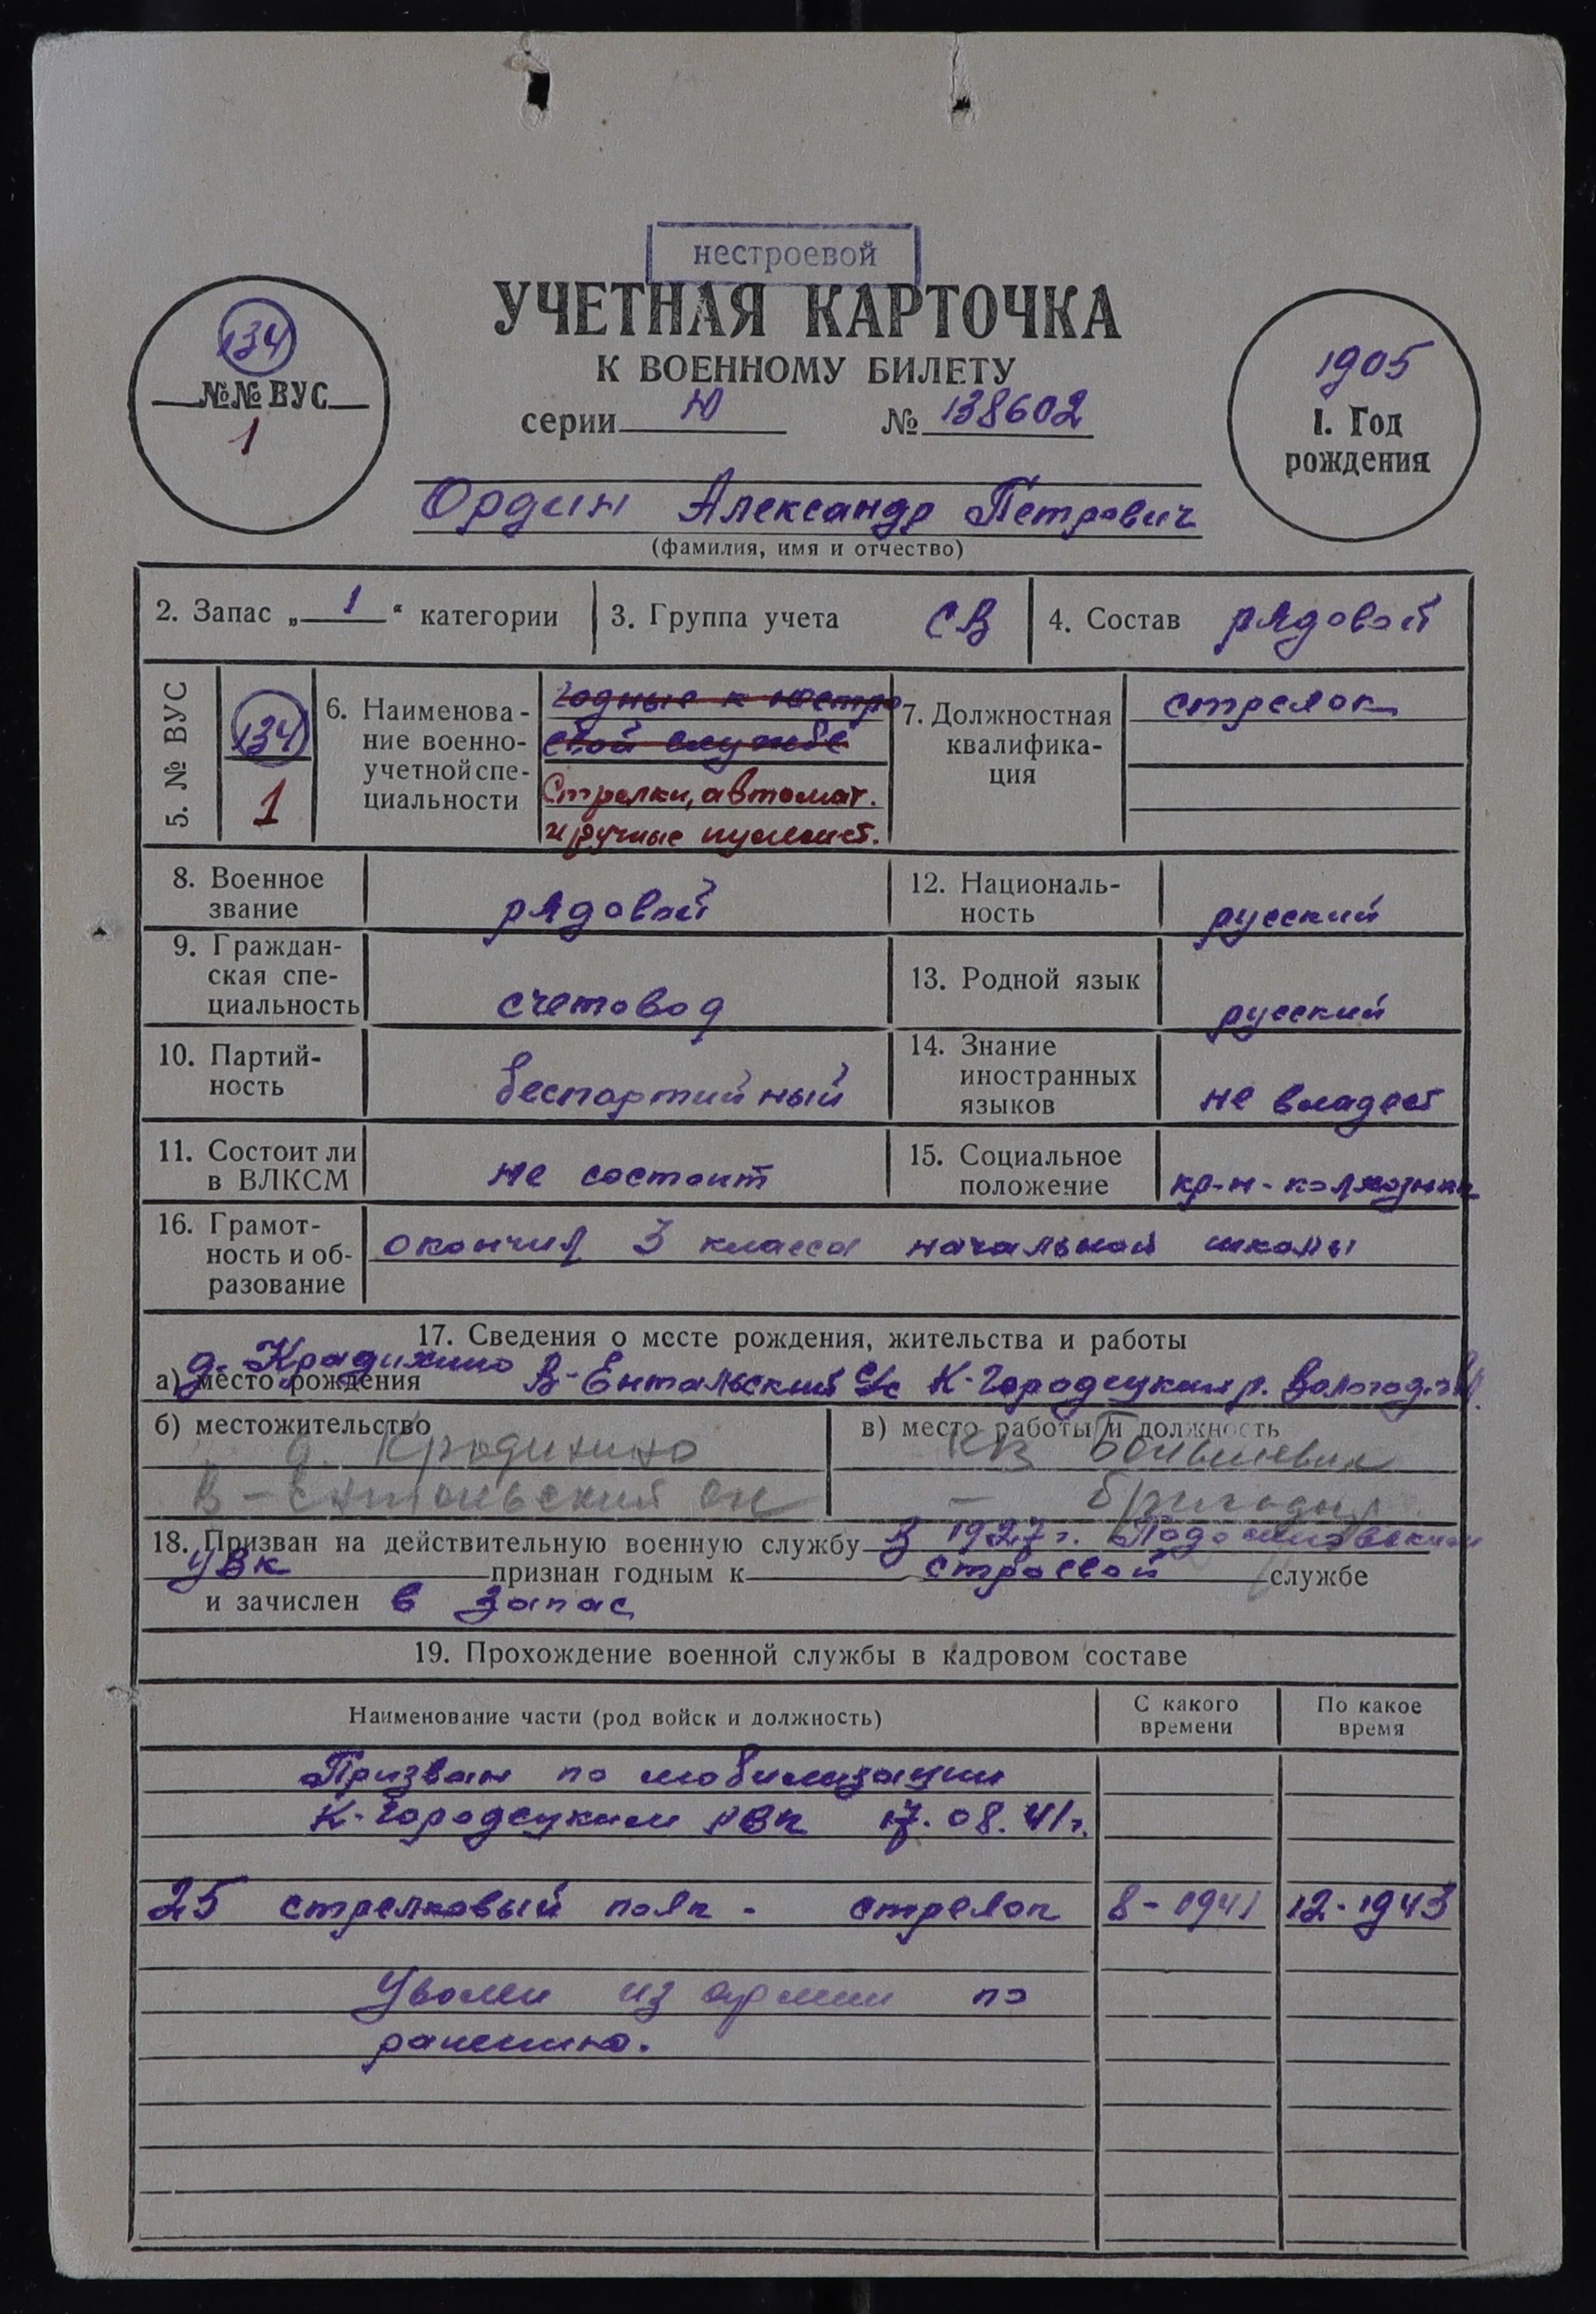 нестроевой
УЧЕТНАЯ КАРТОЧКА
К ВОЕННОМУ БИЛЕТУ
серии Ю № 138602
134
№№ ВУС
1
1905
1. Год
рождения
Ордин Александр Петрович
(фамилия, имя и отчество)
2. Запас „ 1 “ категории
3. Группа учета СВ
4. Состав рядовой
5. № ВУС
134
1
6. Наименова-
ние военно-
учетной спе-
циальности
годные к нестро
евой службе
Стрелки, автомат.
и ручные пулемет.
7. Должностная
квалифика-
ция
стрелок
8. Военное
звание
рядовой
12. Националь-
ность
русский
9. Граждан-
ская спе-
циальность
счетовод
13. Родной язык
русский
10. Партий-
ность
беспартийный
14. Знание
иностранных
языков
не владеет
11. Состоит ли
в ВЛКСМ
не состоит
15. Социальное
положение
кр-н-колхозник
16. Грамот-
ность и об-
разование
окончил 3 класса начальной школы
17. Сведения о месте рождения, жительства и работы
д. Крадихино
а) место рождения В-Ентальский с/с К-Городецкий р. Вологод.
б) местожительство
д. Крадихино
В-Ентальский с/с
в) место работы и должность
Большевик
- бригадир
18. Призван на действительную военную службу В 1927 г. Подосиновским
УВК признан годным к строевой службе
и зачислен в запас
19. Прохождение военной службы в кадровом составе
Наименование части (род войск и должность)
С какого
времени
По какое
время
Призван по мобилизации
К-Городецким РВК 17.08.41 г.
25 стрелковый полк - стрелок 8-1941 12-1943
Уволен из армии по
ранению.